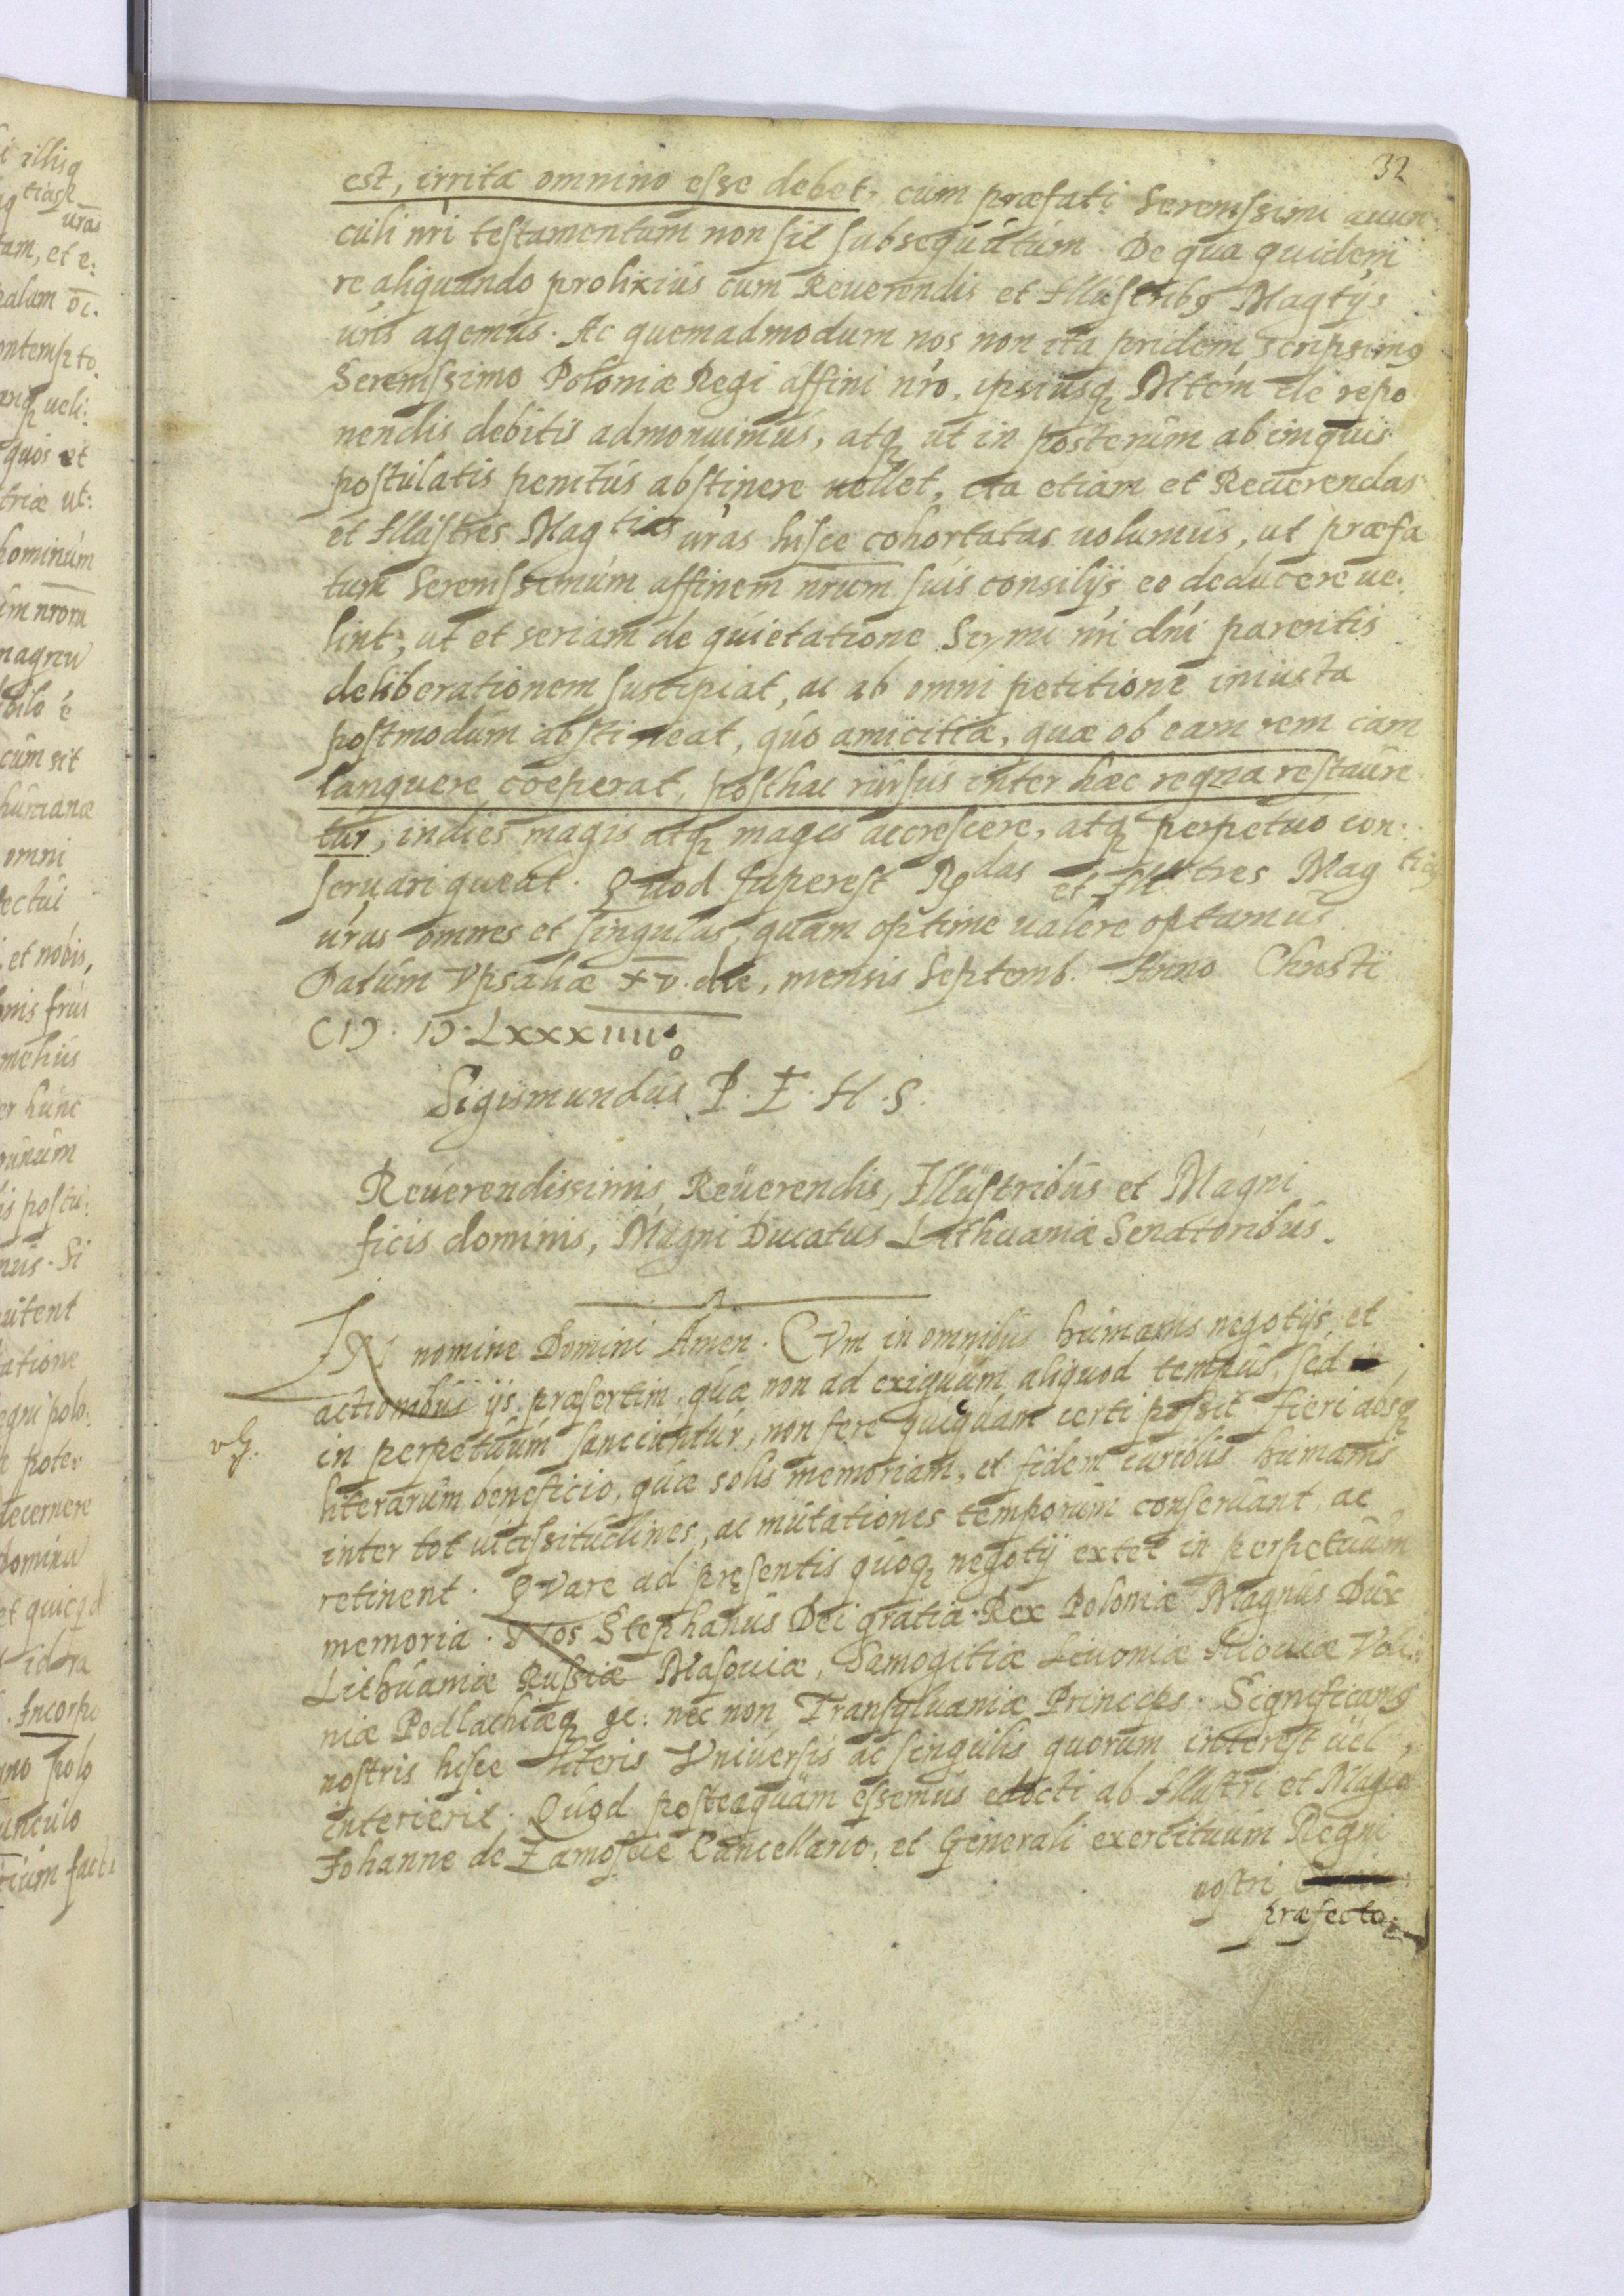 32
est, irrita omnino esse debet, cum præfati Serenissimi auun
culi nri testamentum non sit subsequutum. De qua quidem
re aliquando prolixius cum Reuerendis et Illustribq Magtijs
uris agemus. Ac quemadmodum nos non ita pridem scripsimq
Serenissimo Poloniæ Regi affini nro, ipsiusq Mtem de repo
nendis debitis admonuimus, atq ut in posterum ab iniquis
postulatis penitus abstinere uellet, ita etiam et Reuerendas
et Illustres Magtias uras hisce cohortatas uolumus, ut præfa
tum Serenissimum affinem nrum suis consilijs eo deducere ue:
lint, ut et seriam de quietatione Sermi nri dni parentis
deliberationem suscipiat, ac ab omni petitione iniusta
postmodum abstineat, quo amicitia, quæ ob eam rem iam
languere coeperat, posthac rursus inter hæc regna restaure
tur, indies magis atq magis accrescere, atq perpetuo con:
seruari queat. Quod superest Rdas et Illtres Magtias
uras omnes et singulas, quam optime ualere optamus
Datum Vpsaliæ XV. die, mensis Septemb. Anno Christi
CIƆ. IƆ. LXXXIIII.o
Sigismundus P. E. H. S.
Reuerendissimis, Reuerendis, Illustribus et Magni
ficis dominis, Magni Ducatus Lithuaniæ Senatoribus.
IN nomine Domini Amen. CVm in omnibus humanis negotijs, et
actionibus ijs præsertim, quæ non ad exiguum aliquod tempus, sed
in perpetuum sanciuntur, non fere quicquam certi possit fieri absq
literarum beneficio, quæ solis memoriam, et fidem iuribus humanis
inter tot uicissitudines, ac mutationes temporum conseruant, ac
retinent. QVare ad pręsentis quoq negotij extet in perpetuum
memoria. Nos Stephanus Dei gratia Rex Poloniæ Magnus Dux
Lithuaniæ Russiæ Masouiæ, Samogitiæ Liuoniæ Kiouiæ Voli:
niæ Podlachiæq gc: nec non Transyluaniæ Princeps. Significamq
nostris hisce literis Vniuersis ac singulis quorum interest uel
intererit. Quod posteaquam essemus edocti ab Illustri et Magco
Johanne de Zamoscie Cancellario, et Generali exercituum Regni
nostri
præfecto